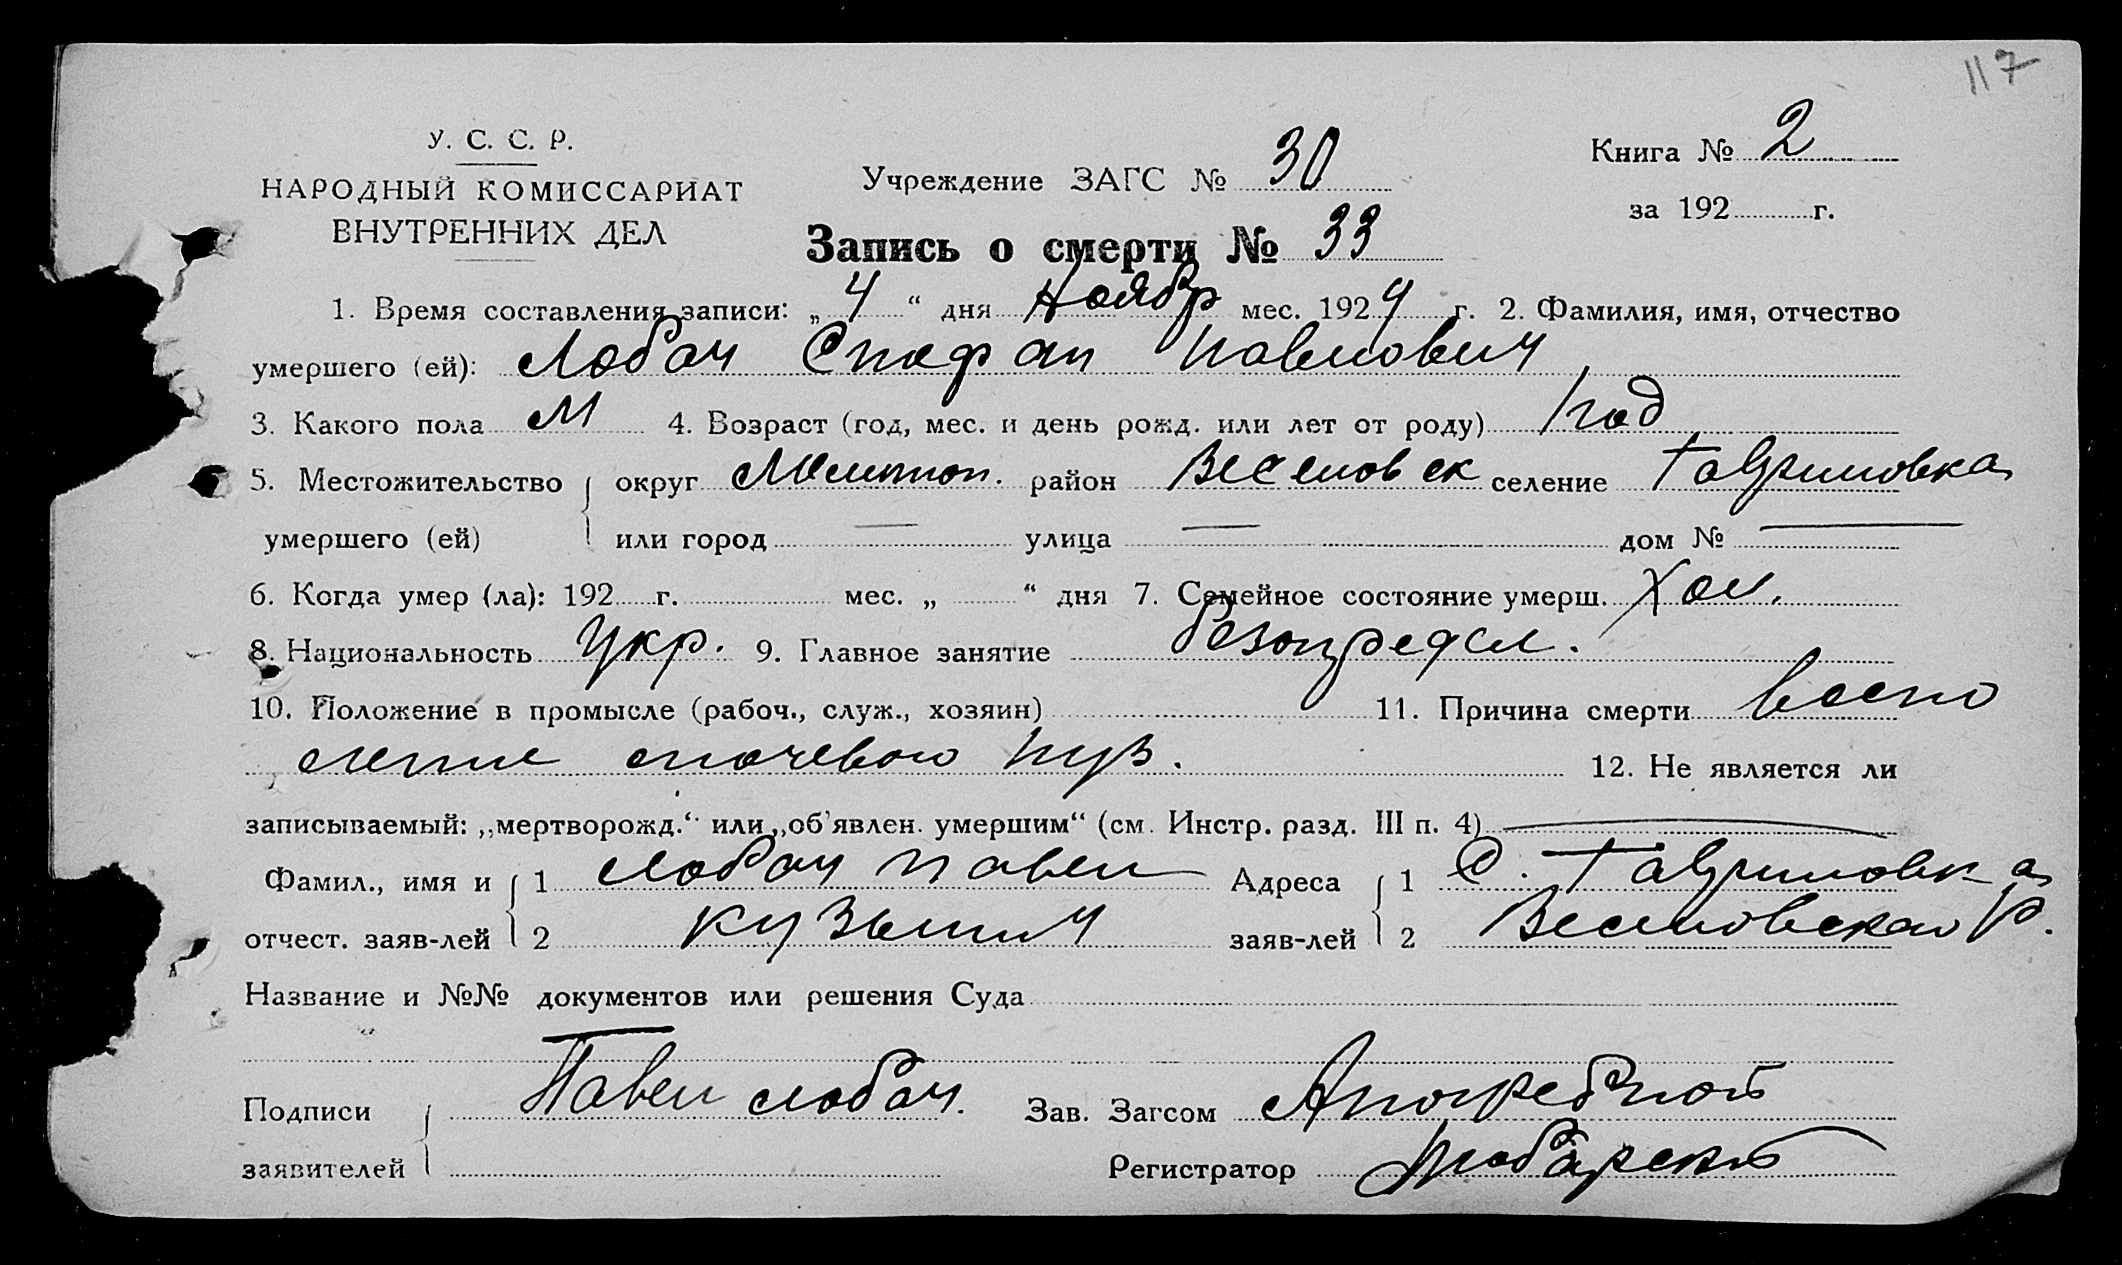 117
У. С. С. Р.
НАРОДНЫЙ КОМИССАРИАТ
ВНУТРЕННИХ ДЕЛ
Учреждение ЗАГС № 30
Книга № 2
за 192 г.
Запись о смерти № 33
1. Время составления записи: „4“ дня Ноябр мес. 1924 г. 2. Фамилия, имя, отчество
умершего (ей): Лобач Стефан Павлович
3. Какого пола М 4. Возраст (год, мес. и день рожд. или лет от роду) 1 год
5. Местожительство округ Мелитоп. район Веселовск селение Гавриловка
умершего (ей) или город — улица — дом № —
6. Когда умер (ла): 192 г. мес. „ “ дня 7. Семейное состояние умерш. Хол.
8. Национальность Укр. 9. Главное занятие
10. Положение в промысле (рабоч., служ., хозяин) 11. Причина смерти воспо
ление мочевого пуз. 12. Не является ли
записываемый: „мертворожд.“ или „об'явлен. умершим“ (см. Инстр. разд. III п. 4) —
Фамил., имя и 1 Лобач Павел Адреса 1 С. Гавриловка
отчест. заяв-лей 2 Кузьмич заяв-лей 2 Веселовского р.
Название и №№ документов или решения Суда
Подписи Павел Лобач. Зав. Загсом
заявителей Регистратор